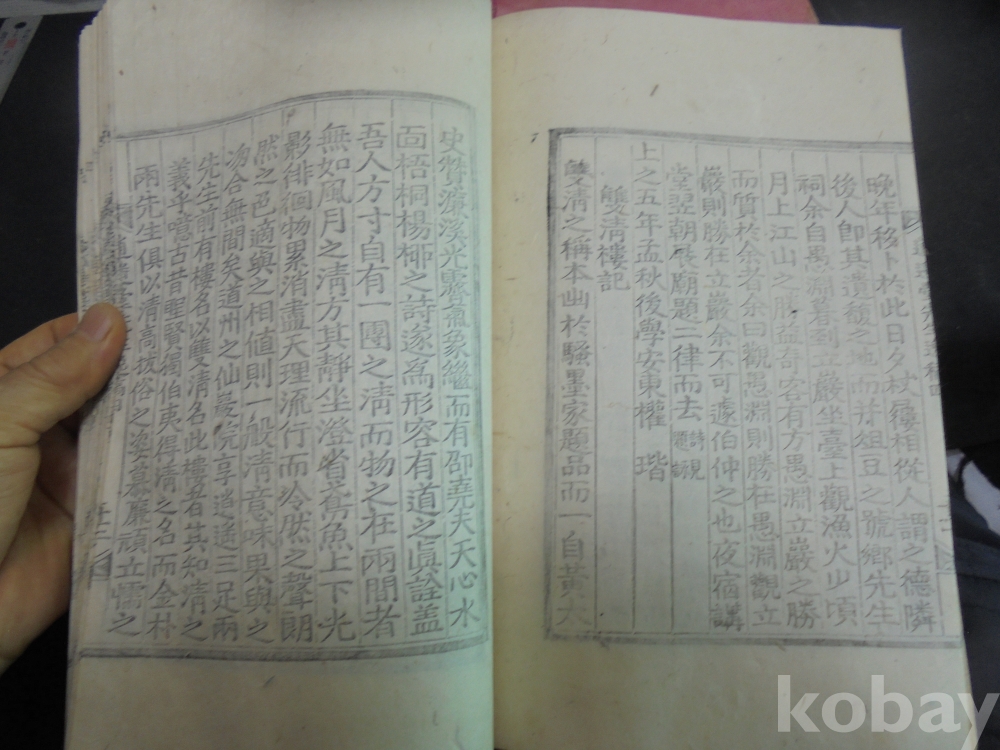 晩年移卜於此日夕杖屨相從人謂之德隣
後人卽其遺墟之而芬俎豆之號鄉先生
祠余自愚淵暮到立巖坐臺上觀漁火少頃
月上江山之勝益奇客有方愚淵立巖之勝
而質於余者余曰觀愚淵則勝在愚淵觀立
巖則勝在立巖余不可遽伯仲之也夜宿講
堂翌朝展廟題二律而去
上之五年孟秋後學安東權 瑎
雙淸樓記
雙淸之稱本出於騷墨家題品而一自黃太
史贊濂溪光霽氣象繼而有邵堯夫天心水
面梧桐楊柳之詩遂爲形容有道之眞詮盖
吾人方寸自有一團之淸而物之在兩間者
無如風月之淸方其靜坐澄省鳶魚上下光
影徘徊物累消盡天理流行而冷然之聲朗
然之色適與之相値則一般淸意味果與之
沕合無間矣道州之仙巖院享逍遙三足兩
先生前有樓名以雙淸名此樓者其知淸之
義乎噫古昔聖賢獨伯夷得淸之名而金朴
兩先生俱以淸高拔俗之姿慕廉頑立懦之
kobay